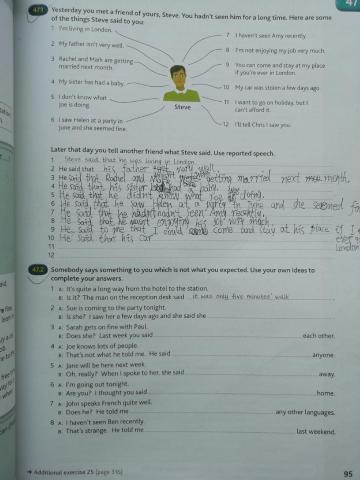 47
47.1 Yesterday you met a friend of yours, Steve. You hadn't seen him for a long time. Here are some
of the things Steve said to you:
1 I'm living in London.
2 My father isn't very well.
3 Rachel and Mark are getting
married next month.
4 My sister has had a baby.
5 I don't know what
Joe is doing.
6 I saw Helen at a party in
June and she seemed fine.
Steve
7 I haven't seen Amy recently.
8 I'm not enjoying my job very much.
9 You can come and stay at my place
if you're ever in London.
10 My car was stolen a few days ago.
11 I want to go on holiday, but I
can't afford it.
12 I'll tell Chris I saw you.
Later that day you tell another friend what Steve said. Use reported speech.
1 Steve said that he was living in London.
2 He said that his father very well.
3 He said that Rachel and getting married next month.
4 He said that his sister had a baby.
5 He said that he didn't know what Joe
6 He said that he saw at a party in June and she seemed
7 He said that he hadn't been Amy recently.
8 He said that he wasn't enjoying his job very much.
9 He said to me that I could come and stay at his place if I
ever
London
10 He said that his car
11
12
47.2 Somebody says something to you which is not what you expected. Use your own ideas to
complete your answers.
1 A: It's quite a long way from the hotel to the station.
B: Is it? The man on the reception desk said it was only five minutes' walk
2 A: Sue is coming to the party tonight.
B: Is she? I saw her a few days ago and she said she
3 A: Sarah gets on fine with Paul.
B: Does she? Last week you said each other.
4 A: Joe knows lots of people.
B: That's not what he told me. He said anyone.
5 A: Jane will be here next week.
B: Oh, really? When I spoke to her, she said away.
6 A: I'm going out tonight.
B: Are you? I thought you said home.
7 A: John speaks French quite well.
B: Does he? He told me any other languages.
8 A: I haven't seen Ben recently.
B: That's strange. He told me last weekend.
→ Additional exercise 25 (page 316)
95